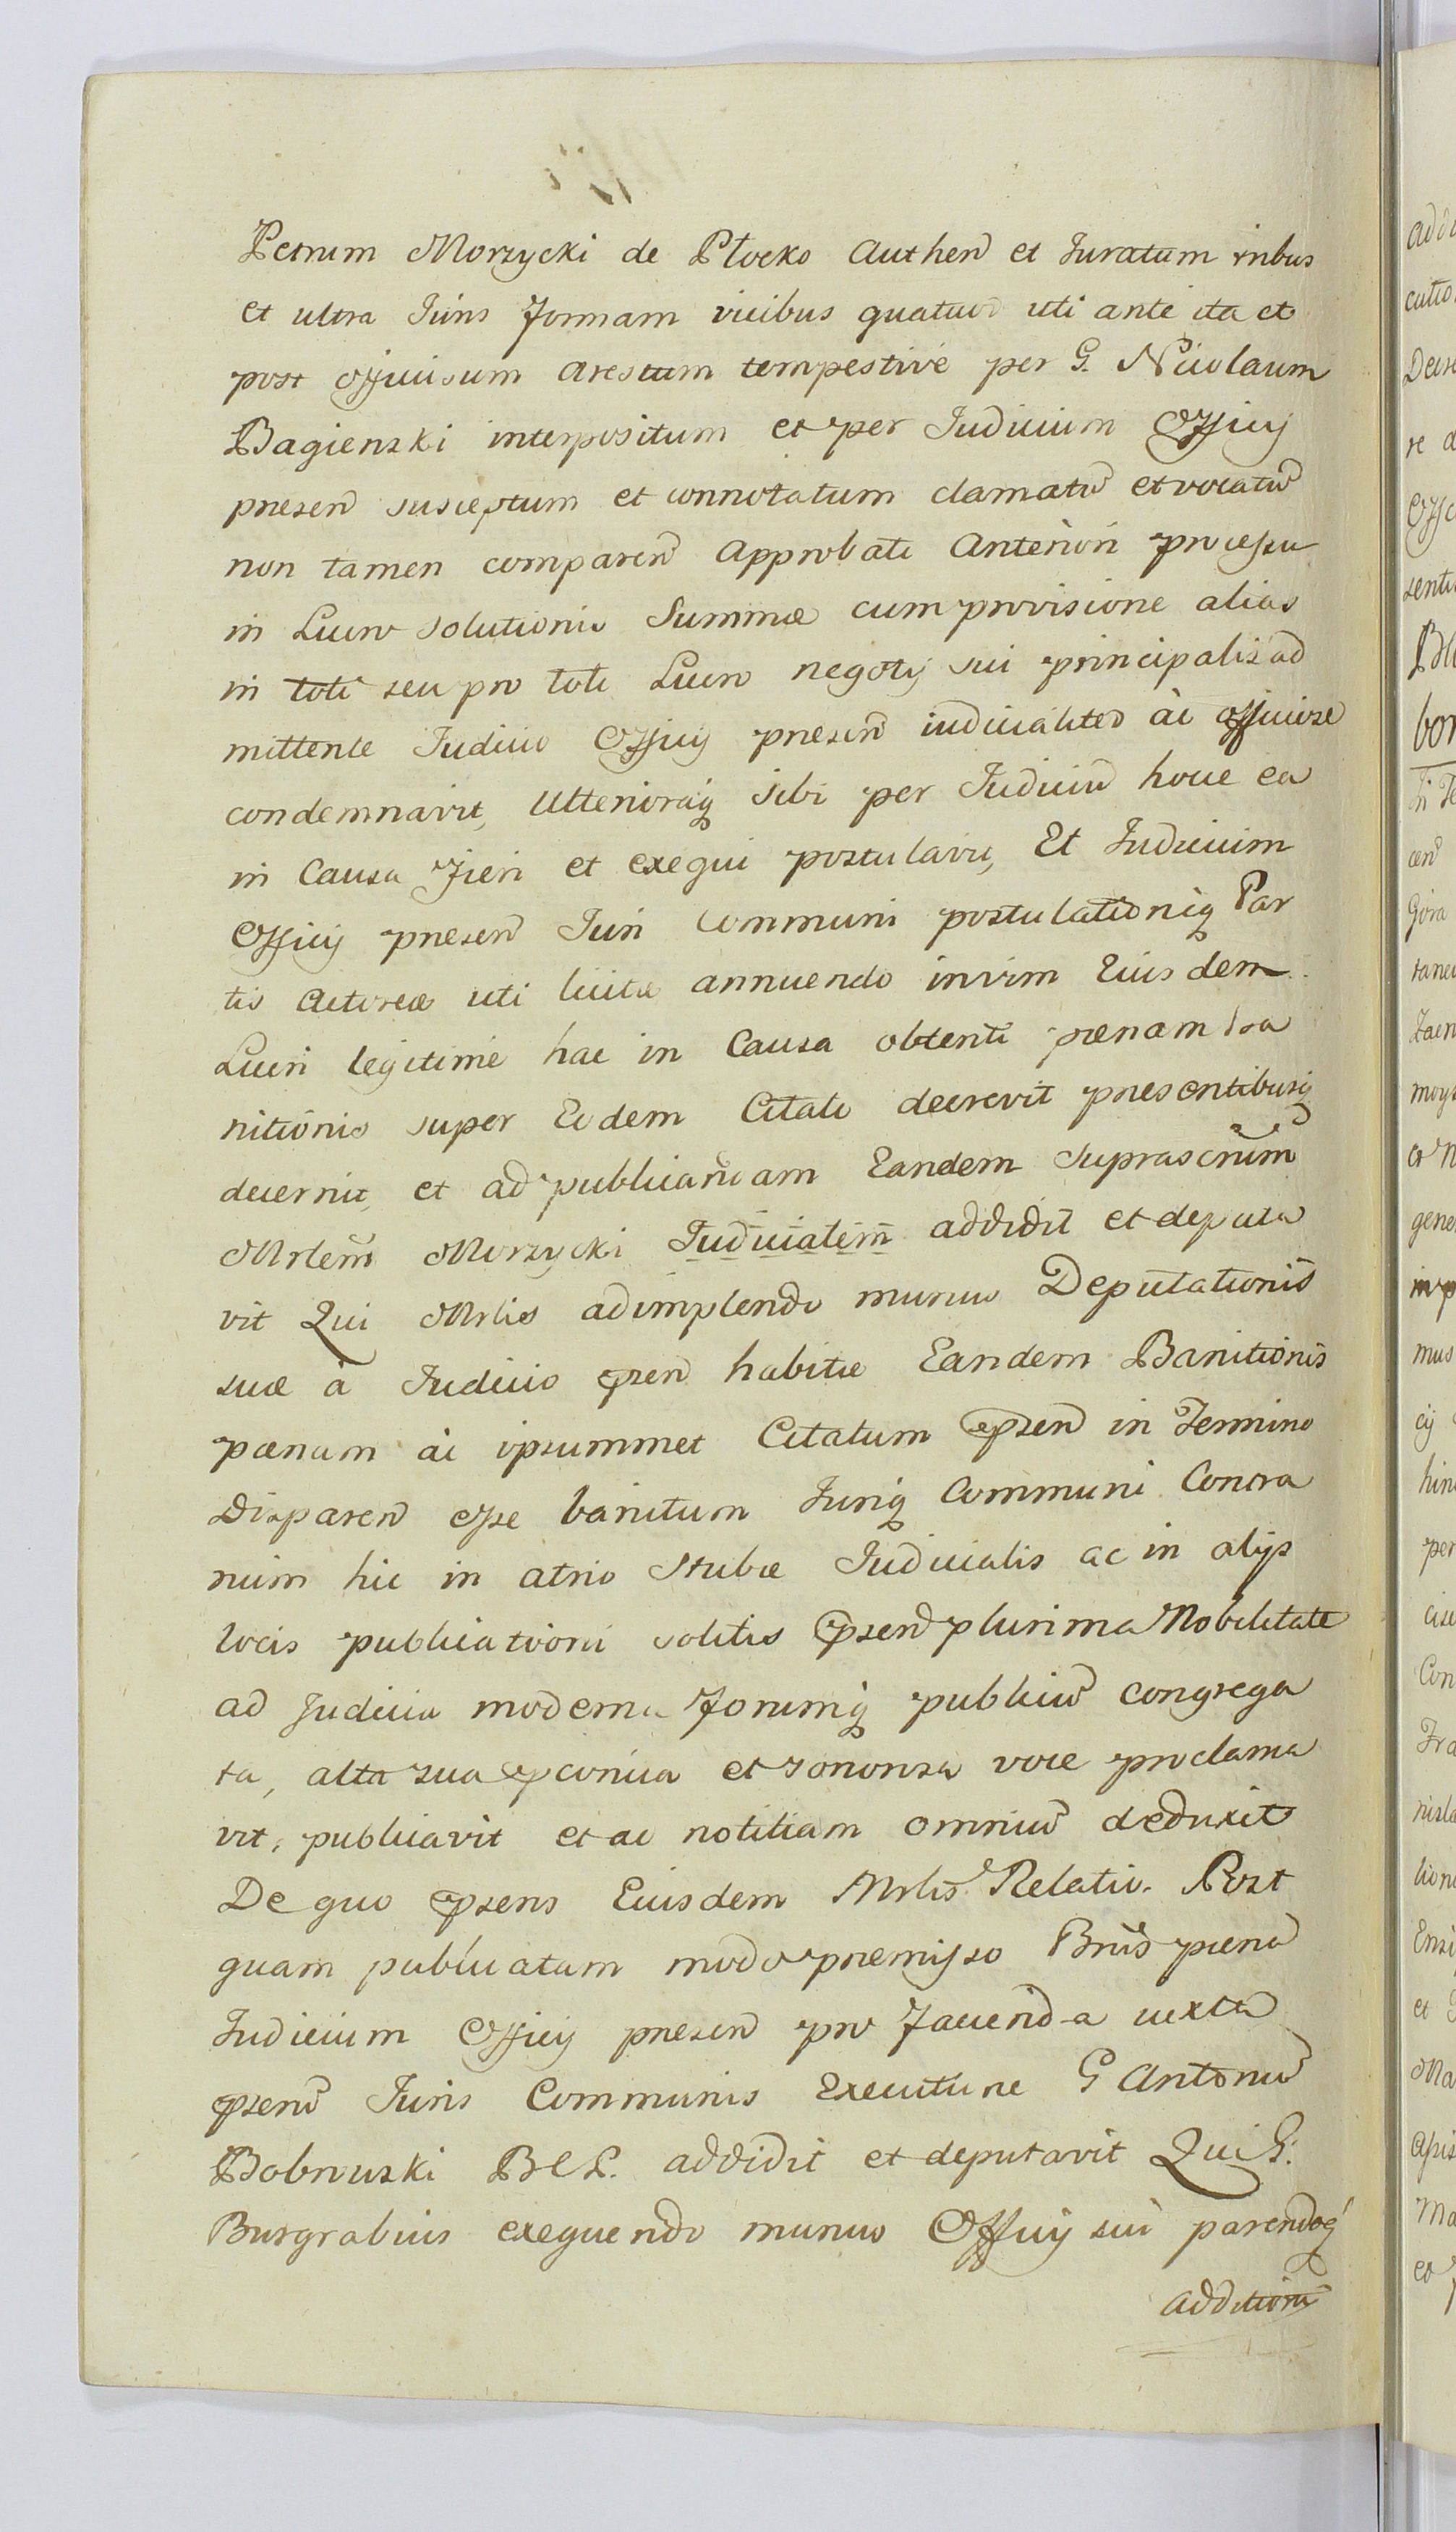 Petrum Morzycki de Płocko Authen et Juratum tribus
et ultra Juris formam vicibus quatuor uti ante ita et
post officiosum arestum tempestivé per G. Nicolaum
Bagienski interpositum et per Judicium Officij
presen susceptum et connotatum clamatū et vocatū
non tamen comparen Approbato Anteriori processu
in Lucro Solutionis Summæ cum provisione alias
in toto seu pro toto Lucro negotij sui principalis ad
mittente Judicio Officij presen iudicialiter ac officiose
condemnavit, Ulterioraq sibi per Judiciū hocce ea
in Causa fieri et exequi postulavit, Et Judicium
Officij presen Juri Communi postulationiq Par
tis Actoreæ uti licitæ annuendo in vim Eiusdem
Lucri legitimé hac in Causa obtenti pœnam ba
nitionis super Eodem Citato decrevit presentibusq
decernit, et ad publicandam Eandem suprascriptum
Mrlem Morzycki Judicialem addidit et deputa
vit Qui Mrlis adimplendo munus Deputationis
suæ á Judicio prsen habitæ Eandem Banitionis
pœnam ac ipsummet Citatum prsen in Termino
Disparen esse banitum Juriq Communi Contra
rium hic in atrio Stubæ Judicialis ac in alijs
locis publicationi solitis prsen plurima Nobilitate
ad Judicia moderna forumq publicū congrega
ta, alta sua prconica et sonorosa voce proclama
vit, publicavit et ad notitiam omniū deduxit
De quo prsens Eiusdem Mrlis Relatio. Post
quam publicatam modo premisso Bnis pœnā
Judicium Officij presen pro facienda iuxta
prsens Juris Communis Executione G Antoniū
Bobrowski B C P. addidit et deputavit Qui G.
Burgrabius exequendo munus Officij sui parendoq
additioni